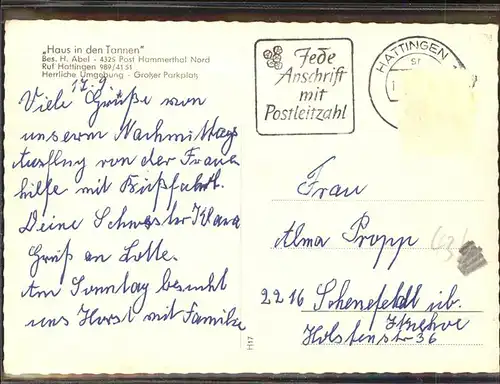 „Haus in den Tannen"
Bes. H. Abel - 4325 Post Hammerthal Nord
Ruf Hattingen 989/41 51
Herrliche Umgebung - Großer Parkplatz
17.9.
Viele Grüße von
unserm Nachmittags
Ausflug von der Frauen
hilfe mit Bußfahrt.
Deine Schwester Klara
Gruß an Lotte.
Am Sonntag besucht
uns Horst mit Familie
Jede
Anschrift
mit
Postleitzahl
HATTINGEN
Frau
Alma Propp
2216 Schenefeld üb.
Itzehoe
Holstenstr 36
H17